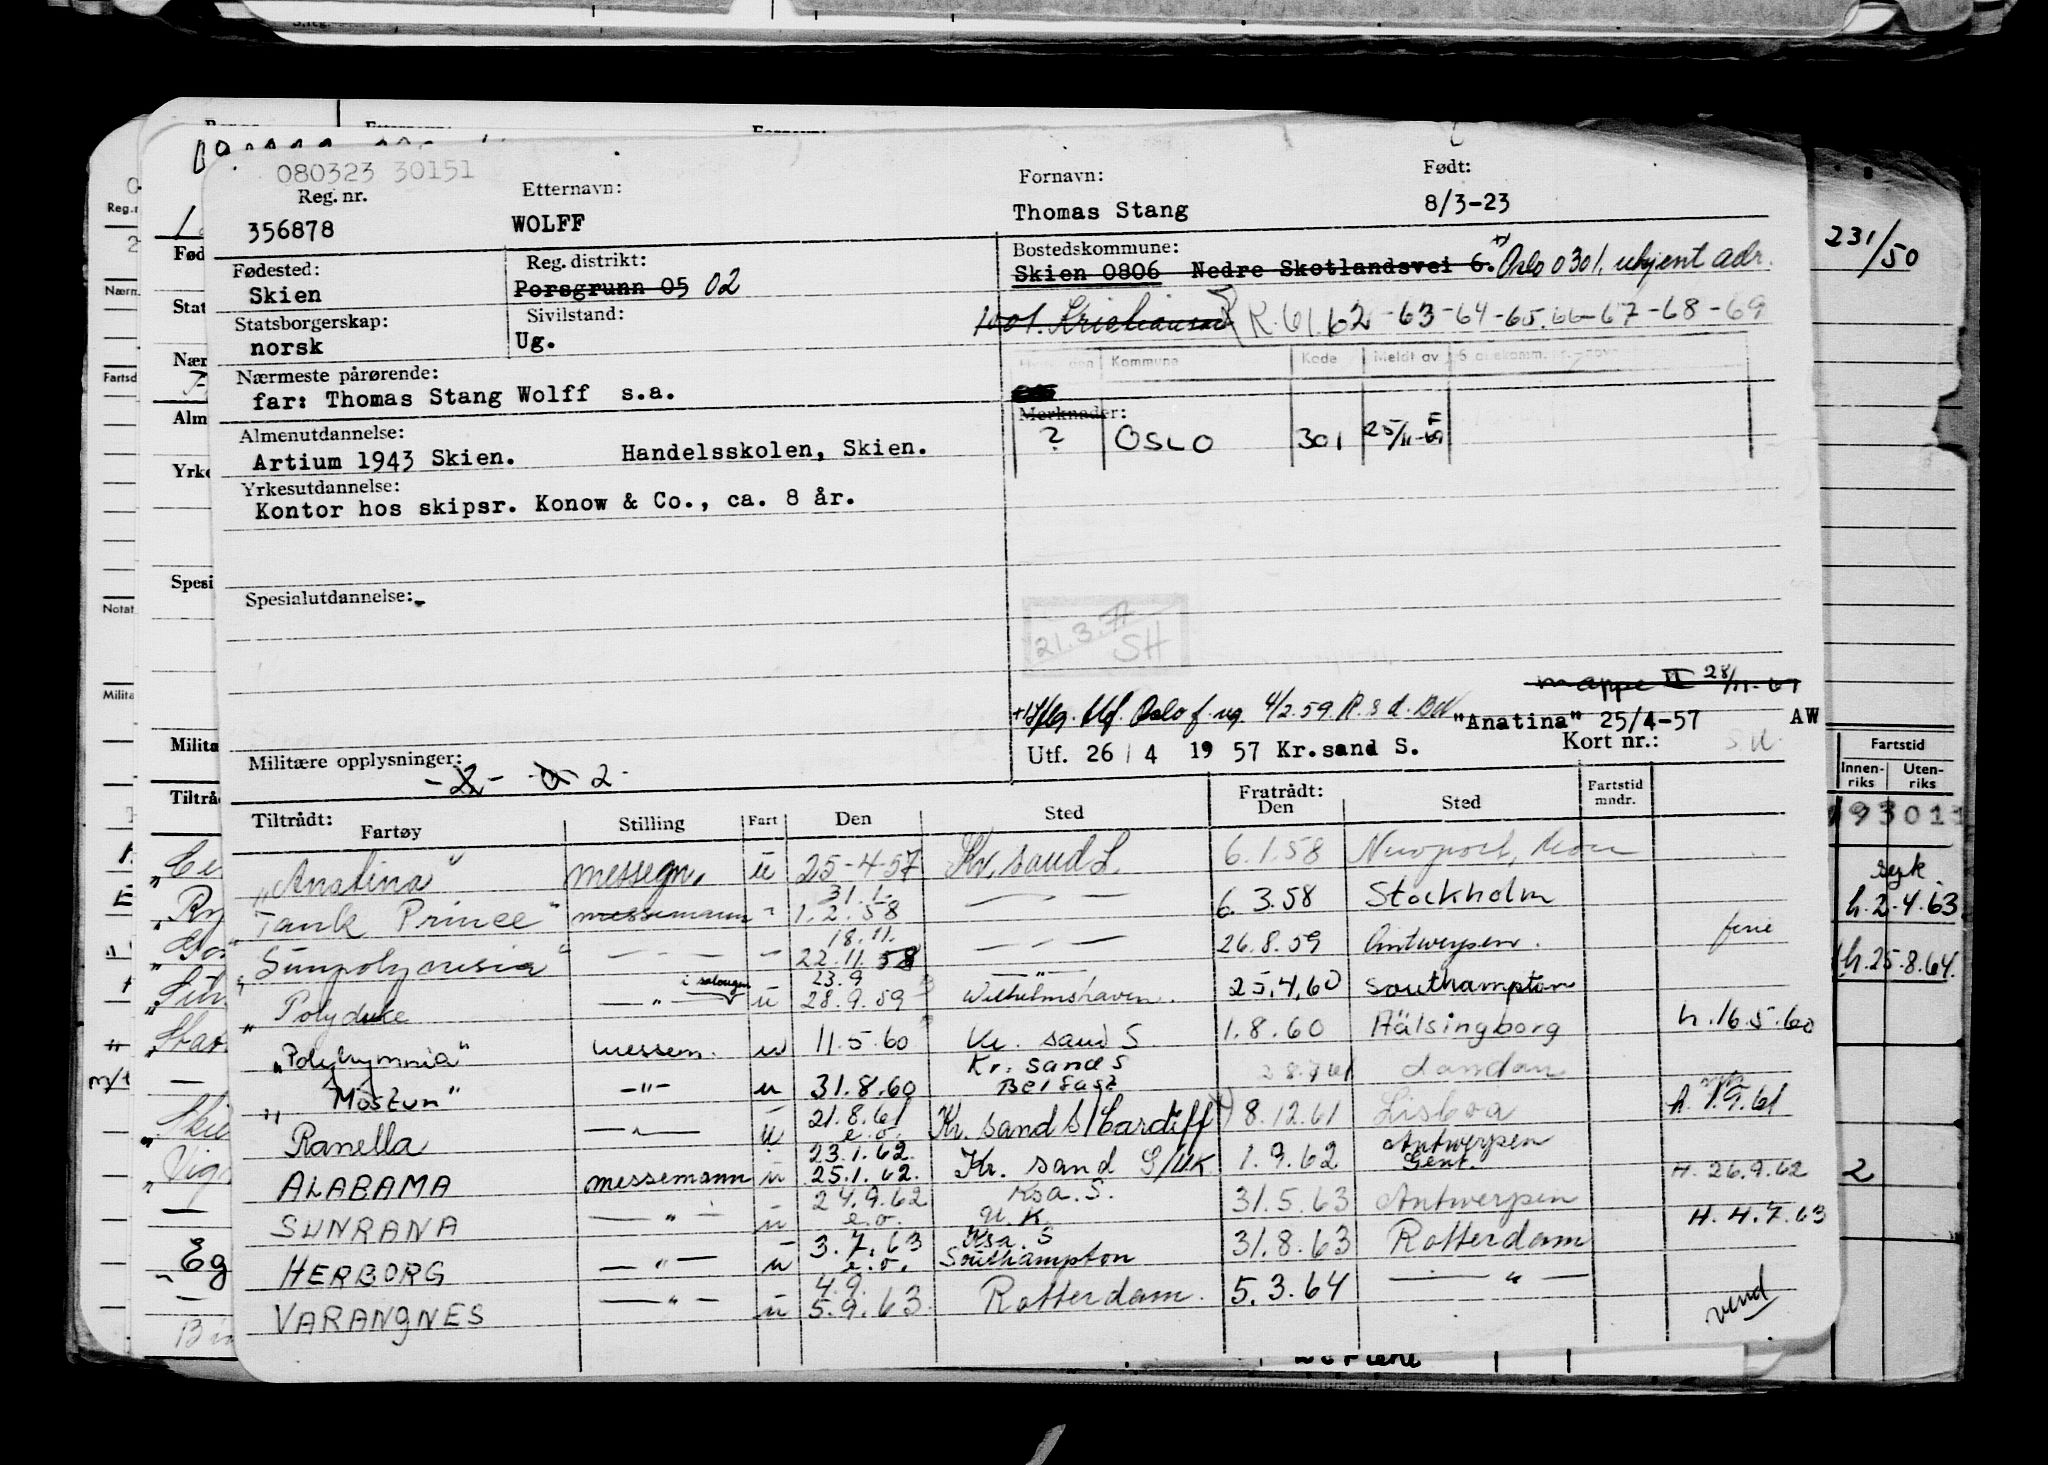 080323 30151
Reg. nr.
Etternavn:
Fornavn:
Født:
356878
WOLFF
Thomas Stang
8/3-23
Fødested:
Reg. distrikt:
Bostedskommune:
Skien
Porsgrunn 05 02
Skien 0806 Nedre Skotlandsvei 6. Oslo 0301, ukjent adr.
Statsborgerskap:
Sivilstand:
1001. R. 61.62-63-64-65.66-67-68-69
norsk
Ug.
Kommune Kode Meldt av
Nærmeste pårørende:
far: Thomas Stang Wolff s.a.
Merknader:
? OSLO 301 25/11-69
Almenutdannelse:
Artium 1943 Skien. Handelsskolen, Skien.
Yrkesutdannelse:
Kontor hos skipsr. Konow & Co., ca. 8 år.
Spesialutdannelse:-
21.3.77
SH
mappe II 28/11-69
Oslo f. ug 4/2.59 "Anatina" 25/4-57 AW
Utf. 26/4 1957 Kr.sand S. Kort nr.:
Militære opplysninger:
-2- 2-
Tiltrådt:
Fartøy Stilling Fart Den Sted Fratrådt: Den Sted Fartstid mndr.
"Anatina" messegn. u 25-4-57 Kr. sand S. 6.1.58 Newport, Mon
Tank Prince" messemann - 31.1. 1.2.58 6.3.58 Stockholm
"Sunpolynesia" 18.11. 22.11.58 26.8.59 Antwerpen. ferie
"Polyduke — " — i salongen u 23.9 28.9.59 Wilhelmshaven. 25.4.60 Southampton
"Polyhymnia" messem. u 11.5.60 Kr. sand S. 1.8.60 Hälsingborg h.16.5.60
"Mostun" -"- u 31.8.60 Kr. sand S Belfast London
Ranella — " — u 21.8.61 e.o. Kr. sand S/Cardiff 8.12.61 Lisboa h. 1.9.61
ALABAMA messemann u 23.1.62. 25.1.62. Kr. sand S/UK 1.9.62 Antwerpen Gent.
SUNRANA — " — u 24.9.62 e.o. Ksa. S. U.K. 31.5.63 Antwerpen H. 26.9.62
HERBORG — " — u 3.7.63 e.o. Ksa. S Southampton 31.8.63 Rotterdam H. 4.7.63
VARANGNES — " — u 4.9. 5.9.63 Rotterdam. 5.3.64 — " —
vend
231/50
Fartstid
Innen-riks Uten-riks
93011
syk.
h.2.4.63
h.25.8.64.
2